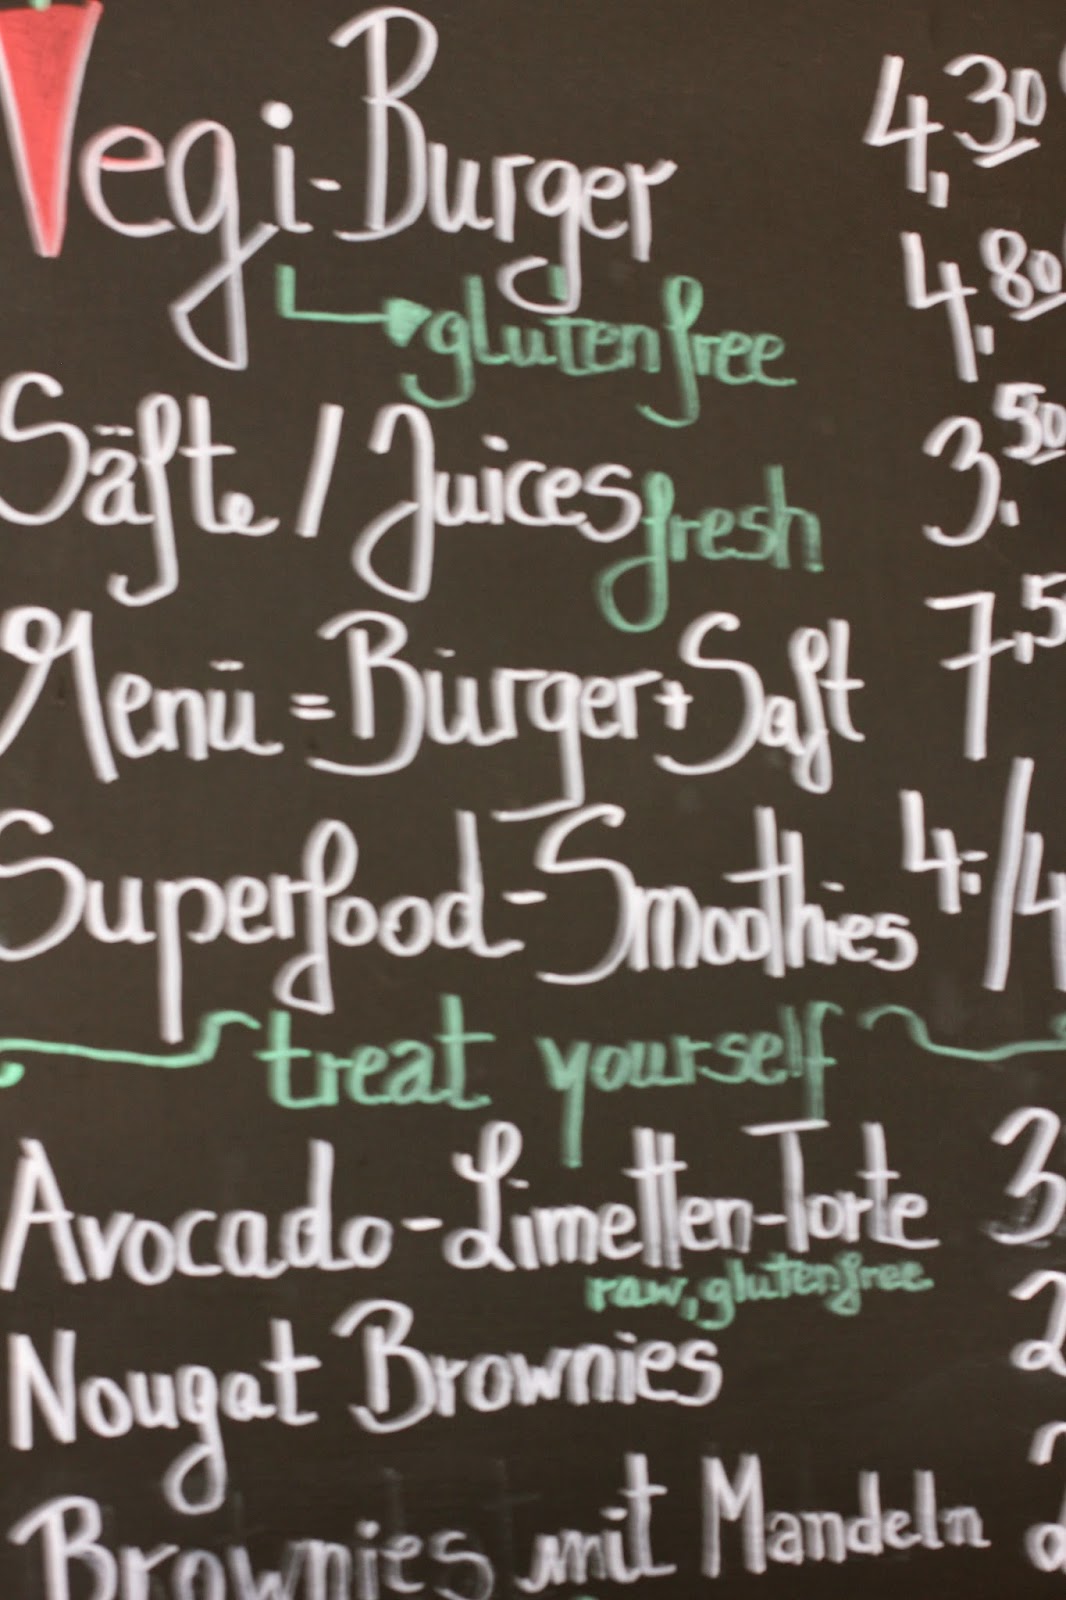 Vegi-Burger 4,30
glutenfree 4,80
Säfte / Juices fresh 3,50
Menü = Bürger + Saft 7,5
Superfood-Smoothies 4.-/4
treat yourself
Avocado-Limetten-Torte 3
raw, glutenfree
Nougat Brownies 2
Brownies mit Mandeln